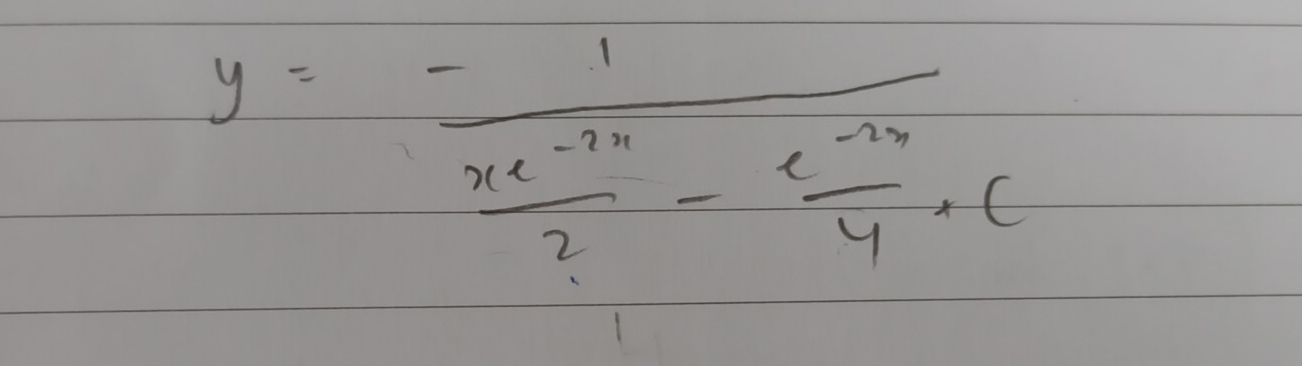 y = - 1
xe^{-2x} e^{-2x}
/2 - /4 + C